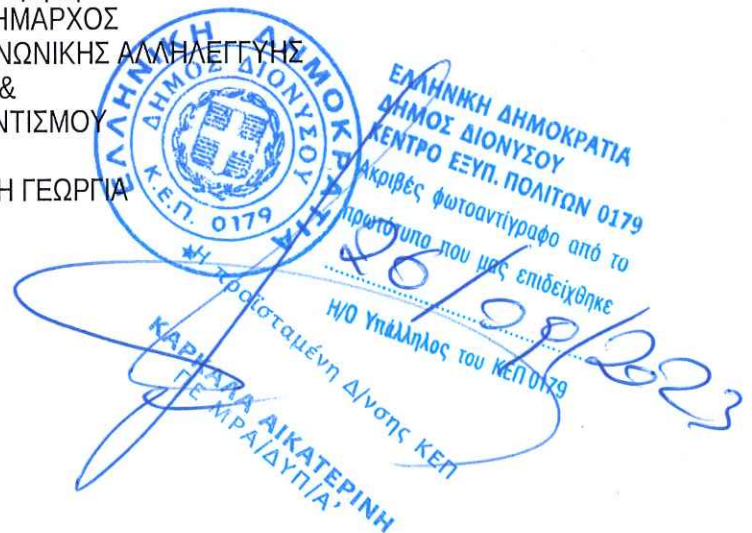 ΗΜΑΡΧΟΣ
ΝΩΝΙΚΗΣ ΑΛΛΗΛΕΓΓΥΗΣ
&
ΝΤΙΣΜΟΥ
Η ΓΕΩΡΓΙΑ
ΕΛΛΗΝΙΚΗ ΔΗΜΟΚΡΑΤΙΑ
ΔΗΜΟΣ ΔΙΟΝΥΣΟΥ
Κ.Ε.Π. 0179
ΕΛΛΗΝΙΚΗ ΔΗΜΟΚΡΑΤΙΑ
ΔΗΜΟΣ ΔΙΟΝΥΣΟΥ
ΚΕΝΤΡΟ ΕΞΥΠ. ΠΟΛΙΤΩΝ 0179
Ακριβές φωτοαντίγραφο από το
πρωτότυπο που μας επιδείχθηκε
26/09/2023
Η/Ο Υπάλληλος του ΚΕΠ 0179
Η προϊσταμένη Δ/νσης ΚΕΠ
ΑΙΚΑΤΕΡΙΝΗ
ΠΕ ΜΡΑ/ΔΥΠ/Α'